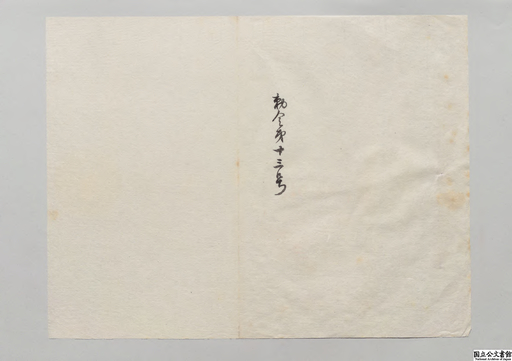 勅令第十三号
国立公文書館
National Archives of Japan